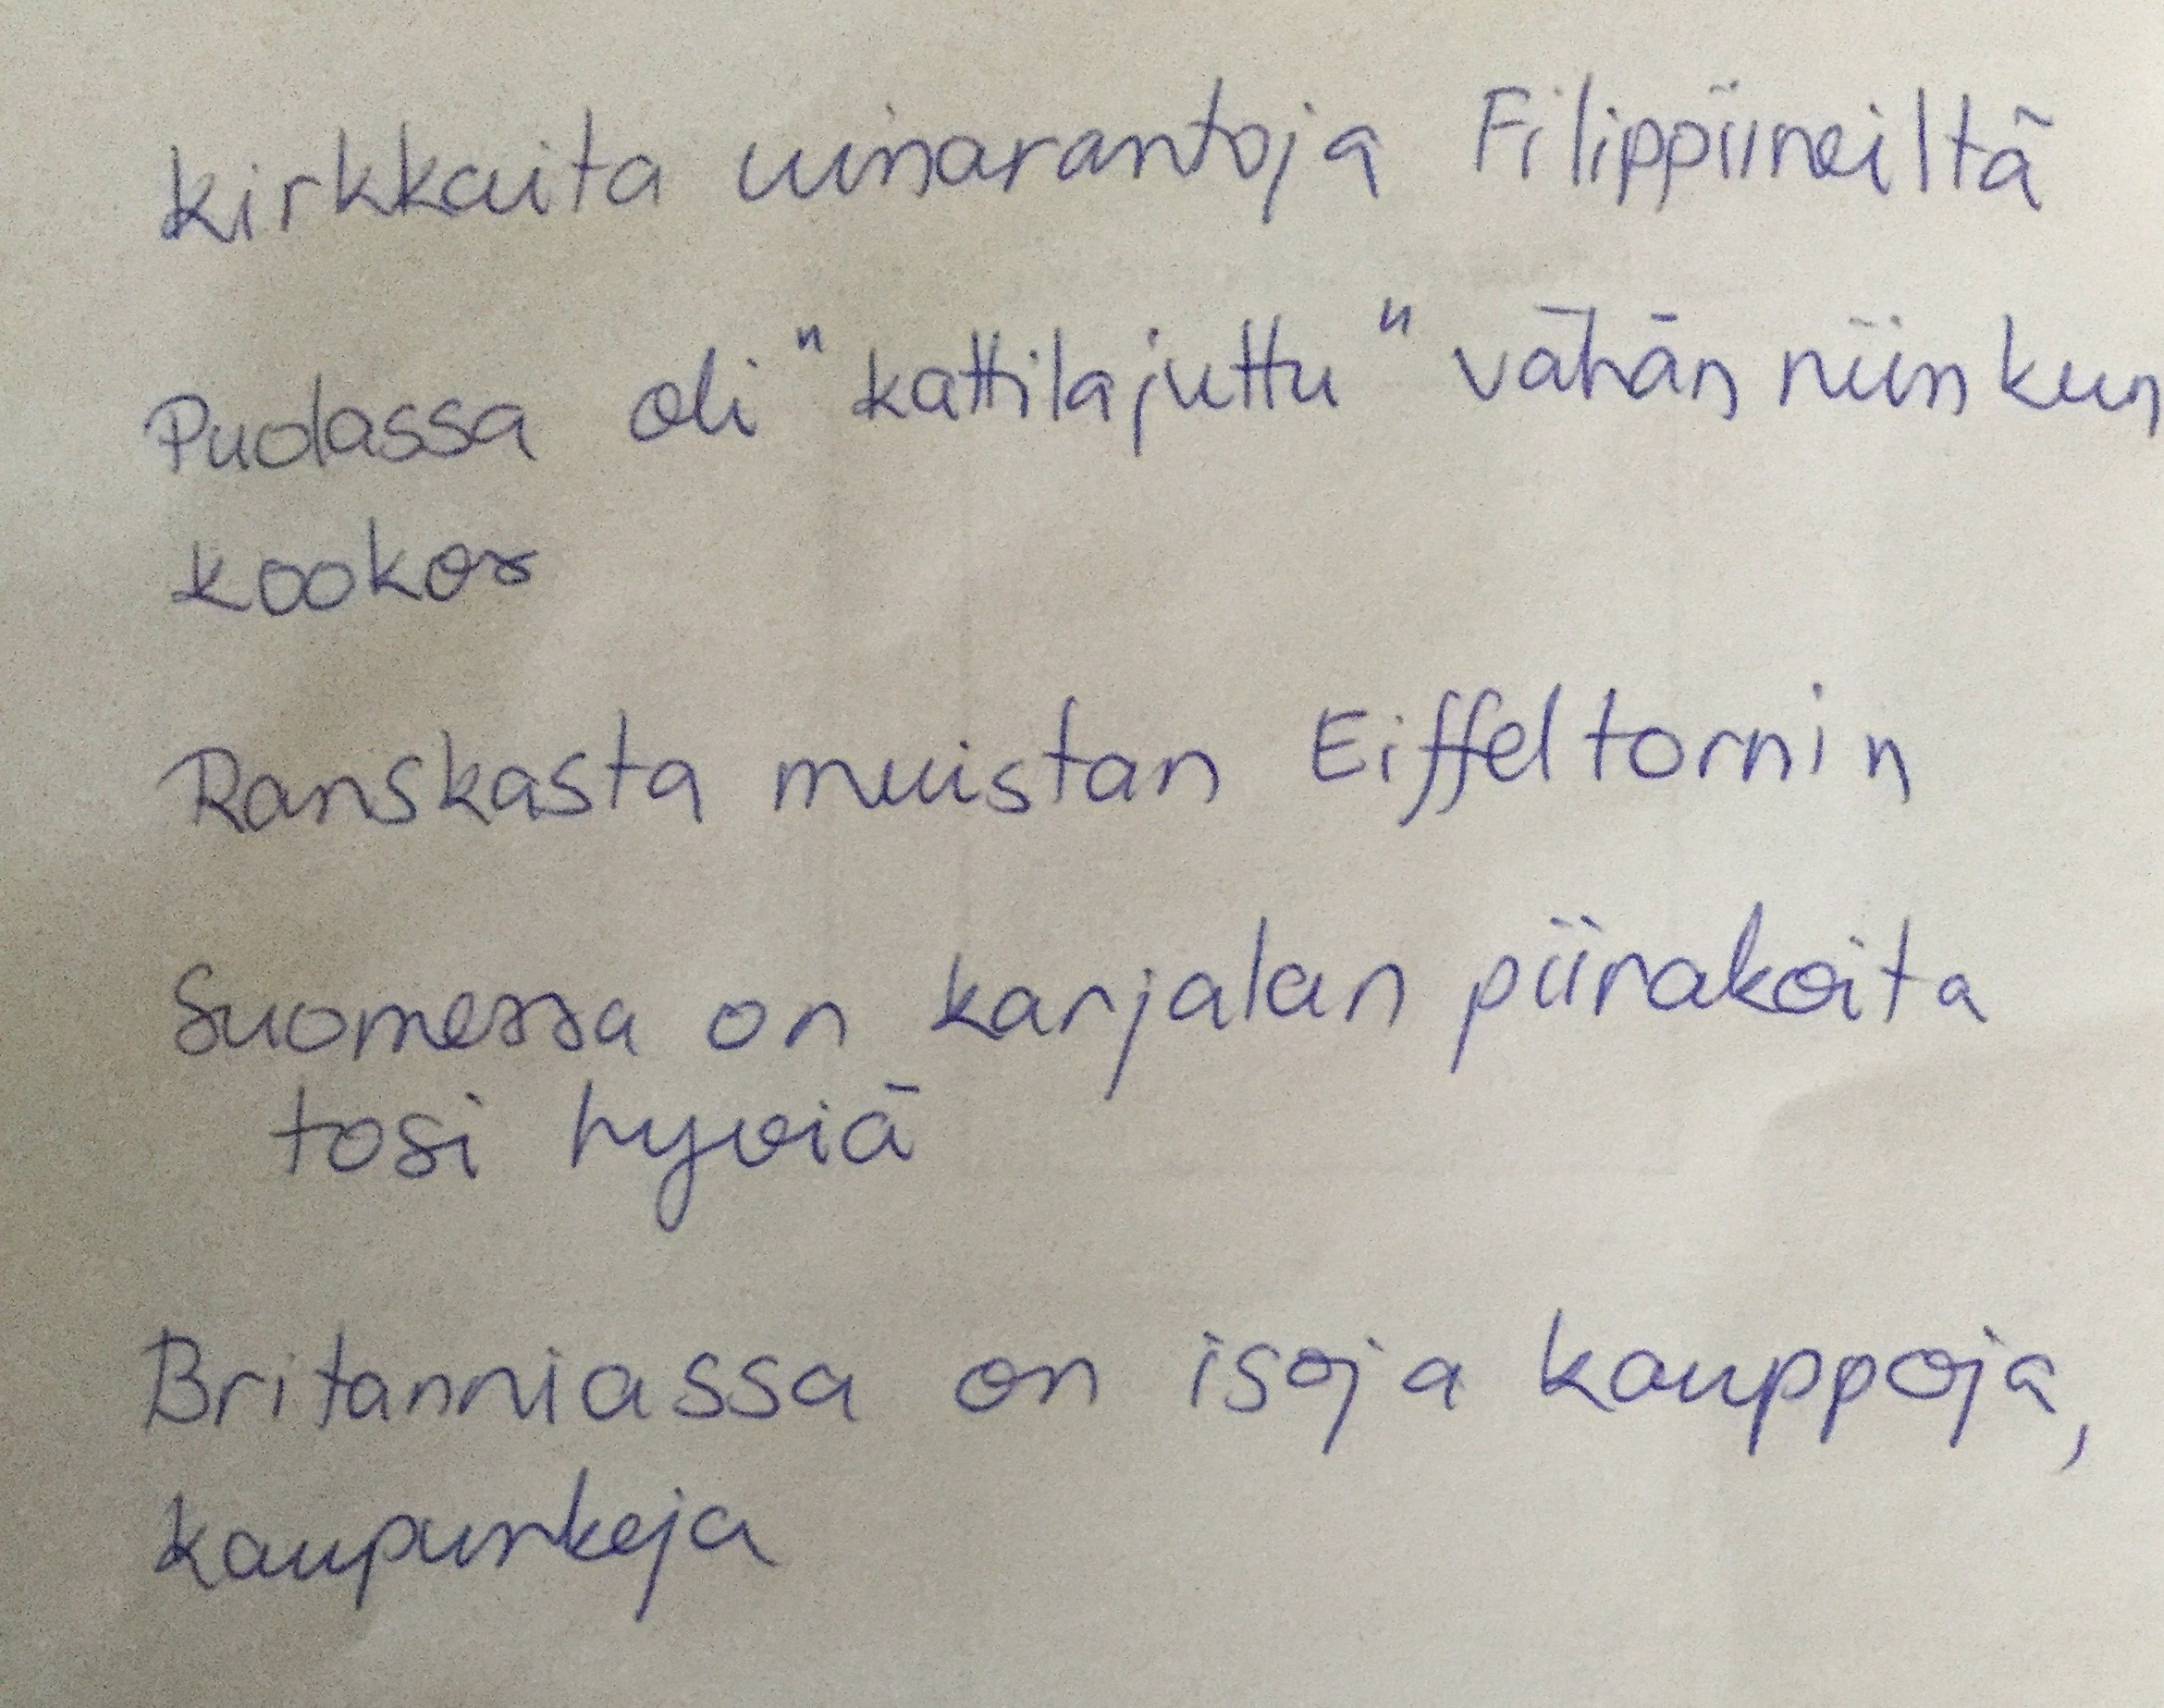 kirkkaita uinarantoja Filippiineiltä
Puolassa oli "kattilajuttu" vähän niinkun
kookos
Ranskasta muistan Eiffeltornin
Suomessa on karjalan piirakoita
tosi hyviä
Britanniassa on isoja kauppoja,
kaupunkeja